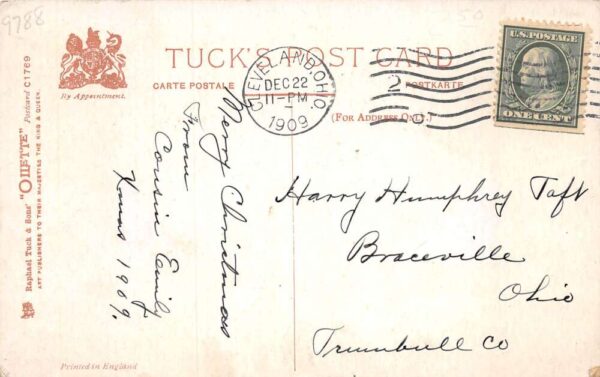 9788
50
TUCK'S POST CARD
By Appointment.
CARTE POSTALE
POSTKARTE
(FOR ADDRESS ONLY.)
CLEVELAND, OHIO
DEC 22
11-PM
1909
2
U.S. POSTAGE
ONE CENT
Raphael Tuck & Sons' "OILETTE" Postcard C1769
ART PUBLISHERS TO THEIR MAJESTIES THE KING & QUEEN.
Merry Christmas
From
Cousin Emily
Xmas 1909.
Harry Humphrey Taft
Braceville
Ohio
Trumbull Co
Printed in England